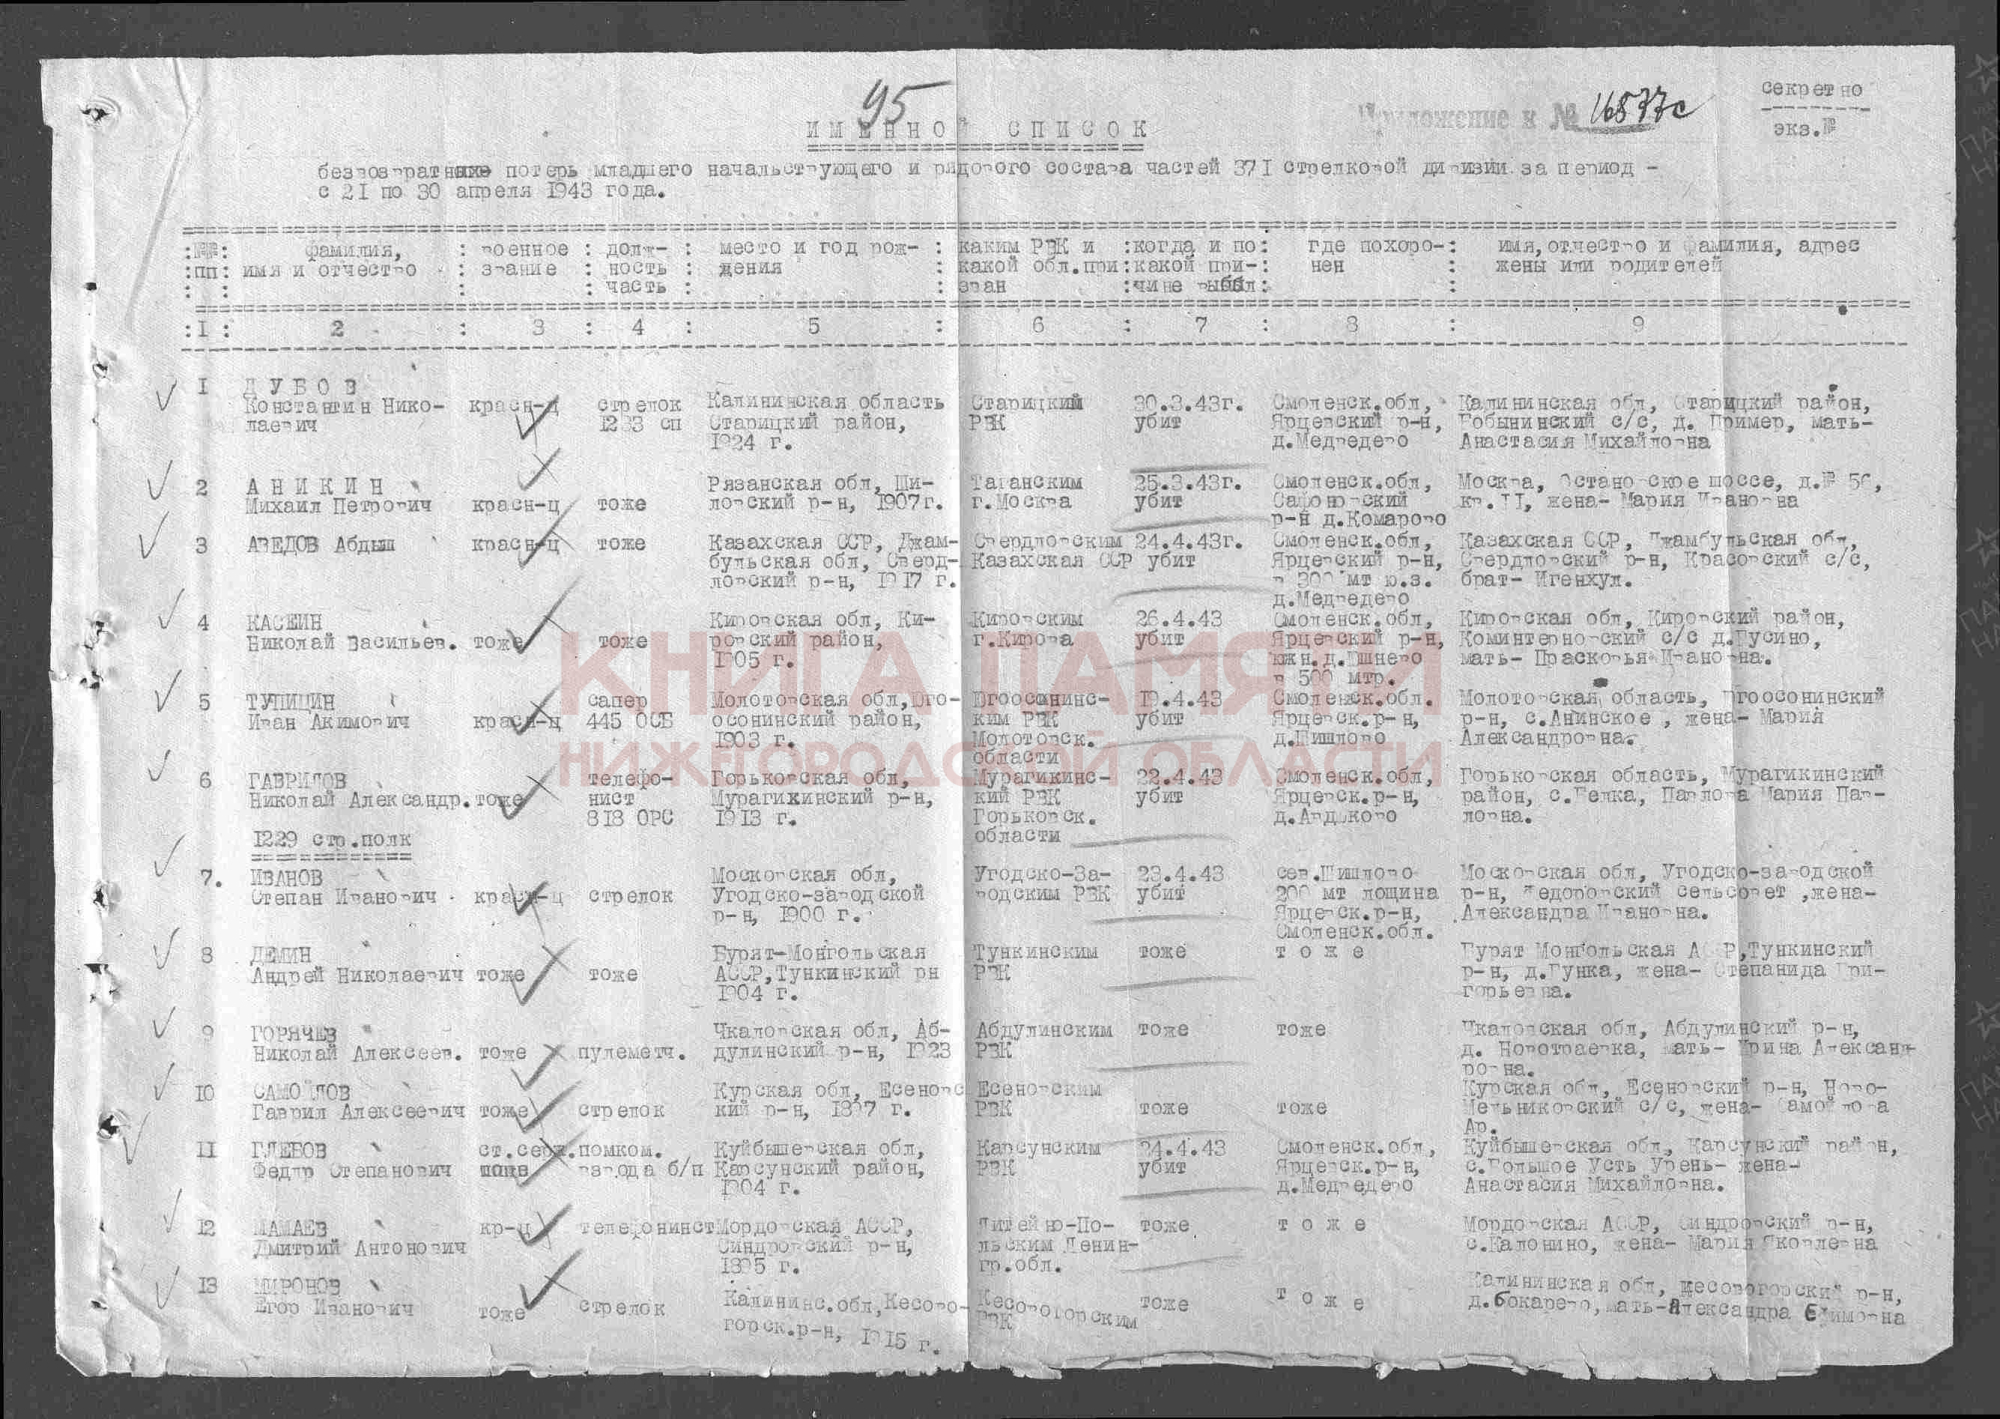 95
Приложение к № 16577с
секретно
экз.№
ИМЕННОЙ СПИСОК
безвозвратных потерь младшего начальствующего и рядового состава частей 371 стрелковой дивизии за период -
с 21 по 30 апреля 1943 года.
:№№: фамилия, : военное : долж- : место и год рож- : каким РВК и :когда и по: где похоро-: имя, отчество и фамилия, адрес
:пп: имя и отчество : звание : ность : дения : какой обл.при:какой при-: нен : жены или родителей
: : : : часть : : зван :чине выбыл: :
:1: 2 : 3 : 4 : 5 : 6 : 7 : 8 : 9
1 ДУБОВ
Константин Нико- красн-ц стрелок Калининская область Старицкий 30.3.43г. Смоленск.обл, Калининская обл, Старицкий район,
лаевич 1233 сп Старицкий район, РВК убит Ярцевский р-н, с/с, д. Пример, мать-
1924 г. д.Медведево Анастасия Михайловна
2 АНИКИН Рязанская обл, Ши- Таганским 25.3.43г. Смоленск.обл, Москва, шоссе, д.№ 56,
Михаил Петрович красн-ц тоже ловский р-н, 1907г. г.Москва убит Сафоновский кв.11, жена- Мария Ивановна
р-н д.Комарово
3 АВЕДОВ Абдыш красн-ц тоже Казахская ССР, Джам- Свердловским 24.4.43г. Смоленск.обл, Казахская ССР, Джамбульская обл,
бульская обл, Сверд- Казахская ССР убит Ярцевский р-н, Свердловский р-н, Красовский с/с,
ловский р-н, 1917 г. в 300 мт ю.з. брат- Игенхул.
д.Медведево
4 КАСЕИН Кировская обл, Ки- Кировским 26.4.43 Смоленск.обл, Кировская обл, Кировский район,
Николай Васильев. тоже тоже ровский район, г.Кирова убит Ярцевский р-н, Коминтерновский с/с д.Гусино,
1905 г. южн.д. мать- Прасковья Ивановна.
в 500 мтр.
5 ТУПИЦИН сапер Молотовская обл,Юго- Югоосонинс- 19.4.43 Смоленск.обл. Молотовская область, Югоосонинский
Иван Акимович красн-ц 445 ОСБ осонинский район, ким РВК убит Ярцевск.р-н, р-н, с.Анинское, жена- Мария
1903 г. Молотовск. д.Шишлово Александровна.
области
6 ГАВРИЛОВ телефо- Горьковская обл, Мурагикинс- 22.4.43 Смоленск.обл, Горьковская область, Мурагикинский
Николай Александр. тоже нист Мурагихинский р-н, кий РВК убит Ярцевск.р-н, район, с.Белка, Павлова Мария Пав-
818 ОРС 1913 г. Горьковск. ловна.
области
1229 стр.полк
7. ИВАНОВ Московская обл, Угодско-За- 23.4.43 сев.Шишлово Московская обл, Угодско-заводской
Степан Иванович красн-ц стрелок Угодско-заводской водским РВК убит 200 мт лощина р-н, Федоровский сельсовет ,жена-
р-н, 1900 г. Ярцевск.р-н, Александра Ивановна.
Смоленск.обл.
8 ДЕМИН Бурят-Монгольская Тункинским тоже тоже Бурят Монгольская АССР,Тункинский
Андрей Николаевич тоже тоже АССР,Тункинский рн РВК р-н, д.Гунка, жена- Степанида Гри-
1904 г. горьевна.
9 ГОРЯЧЕВ Чкаловская обл, Аб- Абдулинским тоже тоже Чкаловская обл, Абдулинский р-н,
Николай Алексеев. тоже пулеметч. дулинский р-н, 1923 РВК д. Новотраевка, мать- Ирина Александ-
ровна.
10 САМОЙЛОВ Курская обл, Есеновс Есеновским Курская обл, Есеновский р-н, Ново-
Гаврил Алексеевич тоже стрелок кий р-н, 1897 г. РВК тоже тоже Мельниковский с/с, жена- Самойлова
Ар.
11 ГЛЕБОВ ст.серж. помком. Куйбышевская обл, Карсунским 24.4.43 Смоленск.обл, Куйбышевская обл, Карсунский район,
Федор Степанович взвода б/п Карсунский район, РВК убит Ярцевск.р-н, с.Большое Усть Урень- жена-
1904 г. д.Медведево Анастасия Михайловна.
12 МАМАЕВ кр-ц телефонинст Мордовская АССР, Литейно-По- тоже тоже Мордовская АССР, Синдровский р-н,
Дмитрий Антонович Синдровский р-н, льским Ленин- с.Калонино, жена- Мария Яковлевна
1895 г. гр.обл.
13 МИРОНОВ Калининская обл, Кесовогорский р-н,
Егор Иванович тоже стрелок Калининс.обл,Кесово- Кесовогорским тоже тоже д.Бокарево,мать-Александра Ефимовна
горск.р-н, 1915 г. РВК
КНИГА ПАМЯТИ
НИЖЕГОРОДСКОЙ ОБЛАСТИ